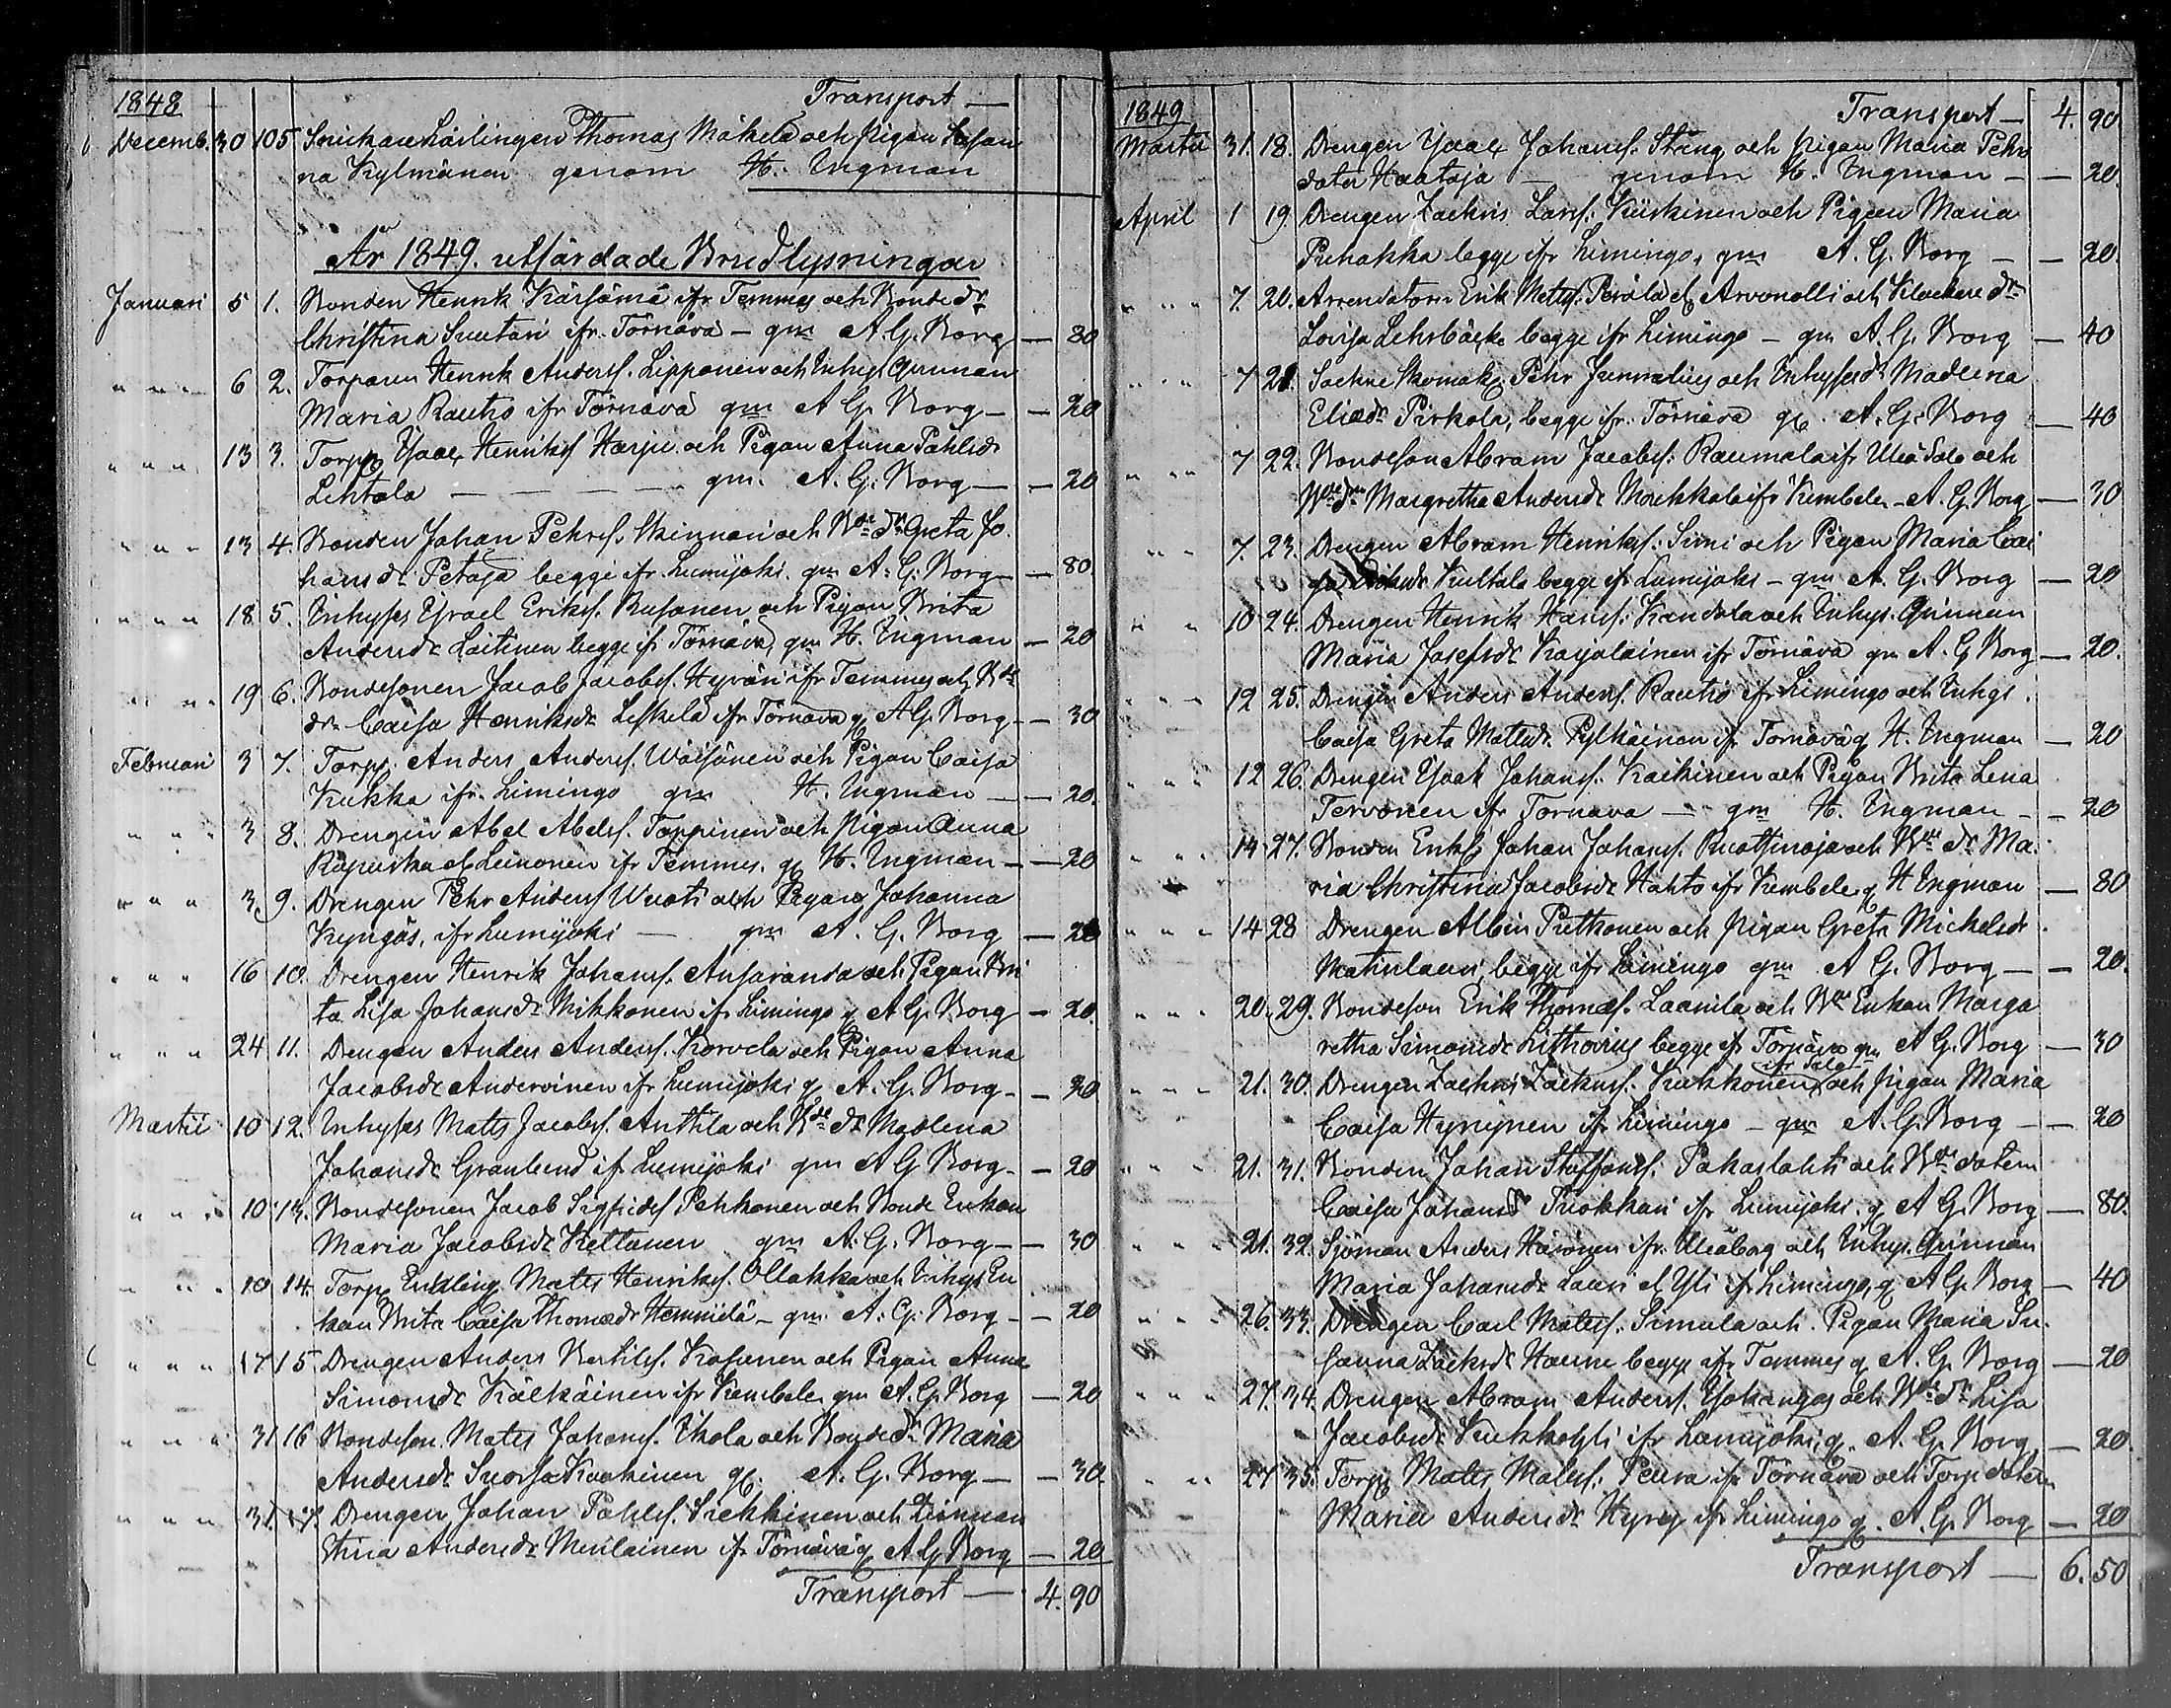 1848 Transport —
Decemb. 30 105 Snickare Lärlingen Thomas Mäkelä och Pigan Susan
na Kylmänen genom H. Ingman
År 1849. utfärdade Brudlysningar
Januari 5 1. Bonden Henrik Kärsämä ifr Temmes och Bonde dr
Christina Suutari ifr. Törnävä — gm A. G. Borg — 80
" " " 6 2. Torparen Henrik Anderss. Lipponen och Inhys Qvinnan
Maria Rautio ifr Törnävä gm A G. Borg — — 20
" " " 13 3. Torp. Isaac Henrikss Harju och Pigan Anna Påhlsdr
Lehtola — — — — gm. A. G. Borg — — 20
" " " 13 4. Bonden Johan Pehrss. Skinnari och Bde dr Greta Jo
hansdr Petäjä begge ifr Lumijoki gm A. G. Borg — — 80.
" " " 18 5. Inhyses Israel Erikss. Busanen och Pigan Brita
Andersdr Laitinen begge ifr Törnävä, gm H. Ingman — 20
" " 19 6. Bondesonen Jacob Jacobss. Hyväri ifr Temmes och Bde
dr Caisa Henriksdr Leskelä ifr Törnävä g. A G. Borg — — 30
Februari 3 7. Torp. Anders Anderss. Wäisänen och Pigan Caisa
Kukka ifr. Limingo gm H. Ingman — — 20.
" " " 3 8. Drengen Abel Abelss. Toppinen och Pigan Anna
el Leinonen ifr Temmes. g. H. Ingman — — 20
" " " 3. 9. Drengen Pehr Anderss Wuoti och Pigan Johanna
Kyngäs, ifr Lumijoki — gm A. G. Borg — 20
" " " 16 10. Drengen Henrik Johanss. Ansaranda och Pigan Bri
ta Lisa Johansdr Mikkonen ifr Limingo g A G. Borg — 20.
" " " 24 11. Drengen Anders Anderss. Korvela och Pigan Anna
Jacobsdr Andervinen ifr Lumijoki g. A. G. Borg — — 20
Martii 10 12. Inhyses Matts Jacobss. Anttila och Bde dr Madlena
Johansdr Granlund if Lumijoki gm A G Borg — — 20
" " " 10 13. Bondesonen Jacob Sigfridss Pehkonen och Bonde Enkan
Maria Jacobsdr Keltanen gm A. G. Borg — — 30
" " " 10 14. Torp. Enkling Matts Henrikss. Ollakka och Inhys En
kan Brita Caisa Thomasdr Hemmilä — gm A. G. Borg — — 20
" " " 17 15. Drengen Anders Bertilss. Kosunen och Pigan Anna
Simonsdr Kälkäinen ifr Kembele gm A. G. Borg — 20
" " " 31 16 Bondeson Matts Johanss. Ikola och Bonde dr Maria
Andersdr Suorsa Kaakinen g. A. G. Borg — — 30.
" " " 31. 17. Drengen Johan Påhlss. Siekkinen och Qvinnan
Stina Andersdr Meriläinen if Törnävä g A G Borg — 20
Transport — 4. 90
1849 Transport — 4. 90
Martii 31. 18. Drengen Isaac Johanss. Stång och Pigan Maria Pehrs
doter Haataja — genom H. Ingman — — 20.
April 1 19. Drengen Zachris Larss. Kiiskinen och Pigan Maria
Puhakka begge ifr Limingo, gm A. G. Borg — — 20.
" " " 7. 20. Arrendatorn Erik Mattss. Perälä el Arvonolli och Klockare dr
Lovisa Lehrbäck begge ifr Limingo — gm A. G. Borg — 40
" " " 7 21. Sockne Skomak. Pehr Junnelius och Inhysesdr Madlena
Eliædr Pirkola, begge ifr. Törnävä g. A. G. Borg — 40
" " " 7 22. Bondeson Abram Jacobss. Raumala ifr Uleå Salo och
Bde dr Margretha Andersdr Moukkala ifr Kembele — A. G. Borg — 30
" " 7. 23. Drengen Abram Henrikss. Simi och Pigan Maria Cai
sa Kultala begge ifr Lumijoki — gm A. G. Borg — 20
" " 10 24. Drengen Henrik Hanss. Kandola och Inhys. Qvinnan
Maria Josefsdr Karjalainen ifr Törnävä gm A. G Borg — 20.
" " 12 25. Drengen Anders Anderss. Rautio ifr Limingo och Inhys.
Caisa Greta Mattsdr. Pylkäinen ifr Törnävä g H. Ingman — 20
" " " 12 26. Drengen Isaak Johanss. Kaikinen och Pigan Brita Lena
Tervonen ifr Tornava — gm H. Ingman — — 20
" " " 14 27. Bonden Erik Johan Johanss. Ruottinoja och Bde dr Ma.
ria Christina Jacobsdr Hahto ifr Kembele g H Ingman — 80
" " " 14 28 Drengen Albin Putkonen och Pigan Greta Mickelsdr
Matinlauri, begge ifr Limingo gm A G. Borg — — 20.
" " " 20. 29. Bondeson Erik Thomæss. Laanila och Bde Enkan Marga
retha Simonsdr Lithovius begge if Törnävä gm A G. Borg — 30
ifr Salo
" " " 21. 30. Drengen Zachris Zachriss. Kukkonen och Pigan Maria
Caisa Hyrynen ifr Limingo — gm A. G. Borg — — 20
" " " 21. 31. Bonden Johan Staffanss. Pakaslahti och Bde dotern
Caisa Johansdr Ruokkari ifr Lumijoki. g A G. Borg — 80.
" " " 21. 32. Sjöman Anders Häisönen ifr. Uleåborg och Inhys. Qvinnan
Maria Johansdr Lauri el Yli if Limingo, g. A G. Borg — 40
" " " 26. 33. Drengen Carl Mattss. Simula och Pigan Maria Su.
sanna Zachrdr Hannu begge ifr Temmes g A. G. Borg — 20
" " " 27. 34. Drengen Abram Anderss. Ypkangas och Bde dr Lisa
Jacobsdr Kukkohyli ifr Lumijoki, g. A. G. Borg. — 20.
" " " 27 35. Torp. Matts Matss. Peura ifr Törnävä och Torp dotern
Maria Andersdr Hyry ifr Limingo g. A. G. Borg — 20
Transport — 6. 50